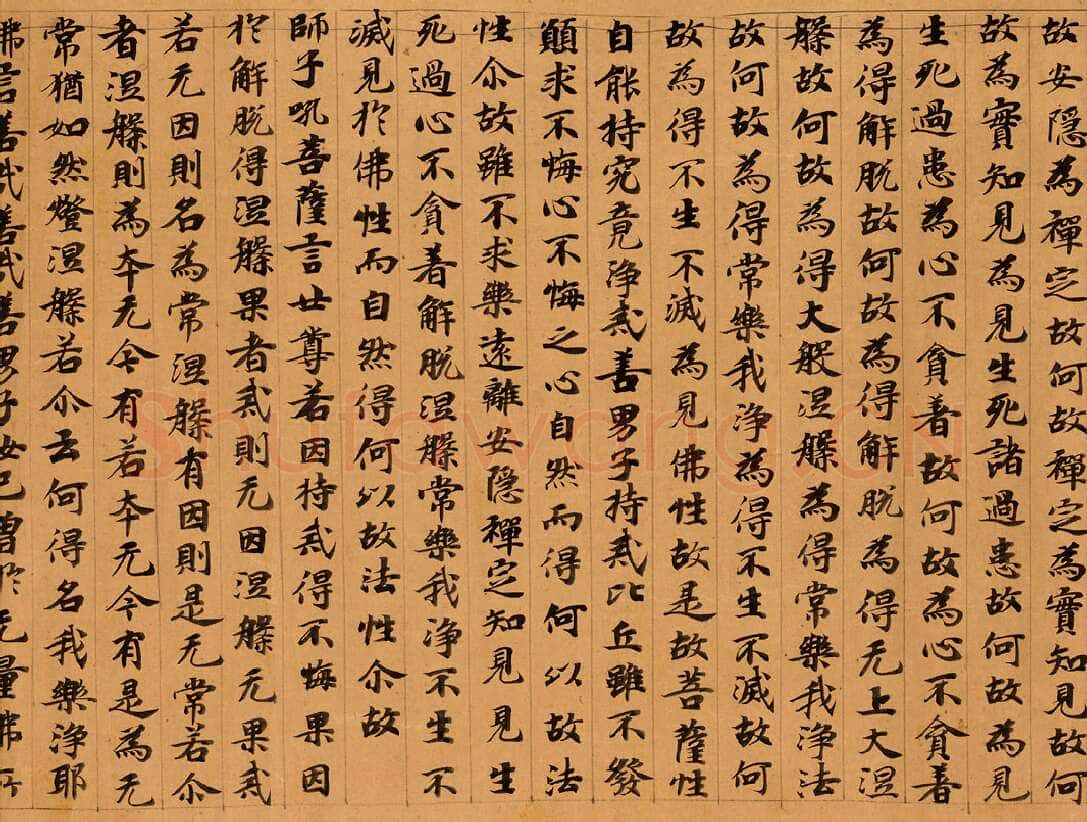 故安隱為禪定故何故禪定為實知見故何
故為實知見為見生死諸過患故何故為見
生死過患為心不貪著故何故為心不貪著
為得解脫故何故為得解脫為得无上大涅
槃故何故為得大般涅槃為得常樂我淨法
故何故為得常樂我淨為得不生不滅故何
故為得不生不滅為見佛性故是故菩薩性
自能持究竟淨戒善男子持戒比丘雖不發
願求不悔心不悔之心自然而得何以故法
性尒故雖不求樂遠離安隱禪定知見見生
死過心不貪著解脫涅槃常樂我淨不生不
滅見於佛性而自然得何以故法性尒故
師子吼菩薩言世尊若因持戒得不悔果因
於解脫得涅槃果者戒則无因涅槃无果戒
若无因則名為常涅槃有因則是无常若尒
者涅槃則為本无今有若本无今有是為无
常猶如然燈涅槃若尒云何得名我樂淨耶
佛言善哉善哉善男子汝已曾於无量佛所
shufawang.cn